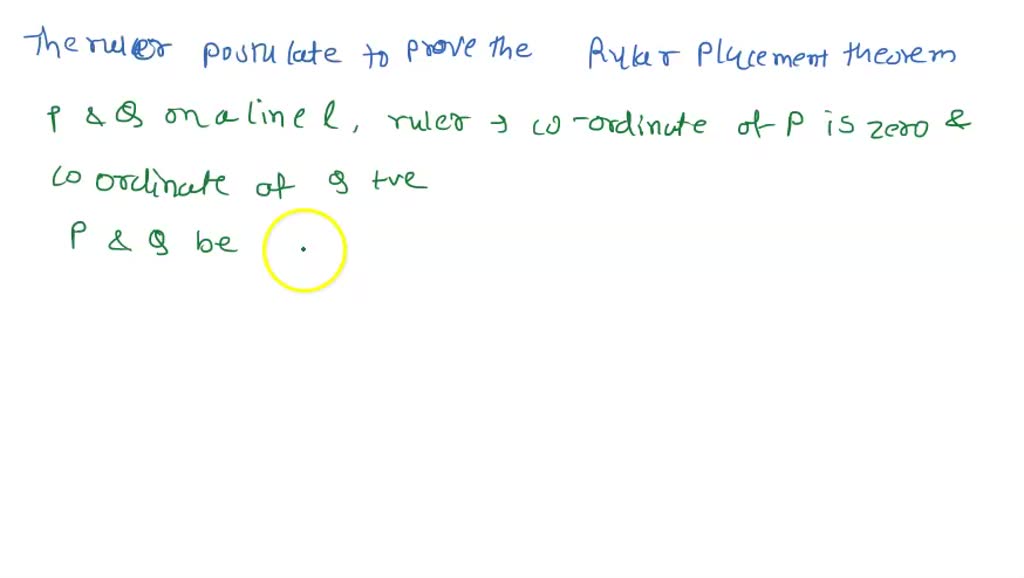 The ruler postulate to prove the Ruler Placement theorem
P & Q on a line l, ruler → co-ordinate of P is zero &
co ordinate of Q +ve
P & Q be